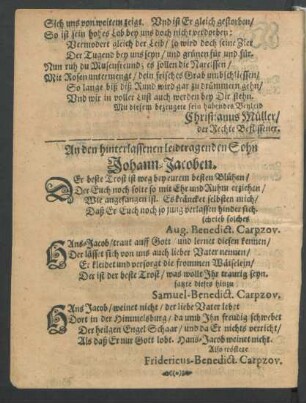 Sich uns von weitem zeigt. Und ist Er gleich gestorben/
So ist sein hohes Lob bey uns doch nicht verdorben:
Vermodert gleich der Leib/ so wird doch seine Zier
Der Tugend bey uns seyn/ und grünen für und für.
Nun ruh du Musenfreund; es sollen die Narcissen/
Mit Rosen untermengt/ dein frisches Grab umbschliessen/
So lange biß diß Rund wird gar zu drümmern gehn/
Und wir in voller Lust auch werden bey Dir stehn.
Mit diesem bezeugete sein habendes Beyleid
Christianus Müller/
der Rechte Beflissener.
An den hinterlassenen leidtragenden Sohn
Johann-Jacoben.
Der beste Trost ist weg bey eurem besten Blühen/
Der Euch noch solte so mit Ehr und Ruhm erziehen/
Wie angefangen ist. Es kräncket selbsten mich/
Daß Er Euch noch so jung verlassen hinder sich.
schrieb solches
Aug. Benedict. Carpzov.
Hans-Jacob/ traut auff Gott/ und lernet diesen kennen/
Der lässet sich von uns auch lieber Vater nennen/
Er kleidet und versorgt die frommen Wäiselein/
Der ist der beste Trost/ was wollt Ihr traurig seyn.
satzte dieses hinzu
Samuel-Benedict. Carpzov.
Hans Jacob/ weinet nicht/ der liebe Vater lebt
Dort in der Himmelsburg/ da umb Ihn freudig schwebet
Der heilgen Engel Schaar/ und da Er nichts verricht/
Als daß Er nun Gott lobt. Hans-Jacob weinet nicht.
Also tröstete
Fridericus-Benedict. Carpzov.